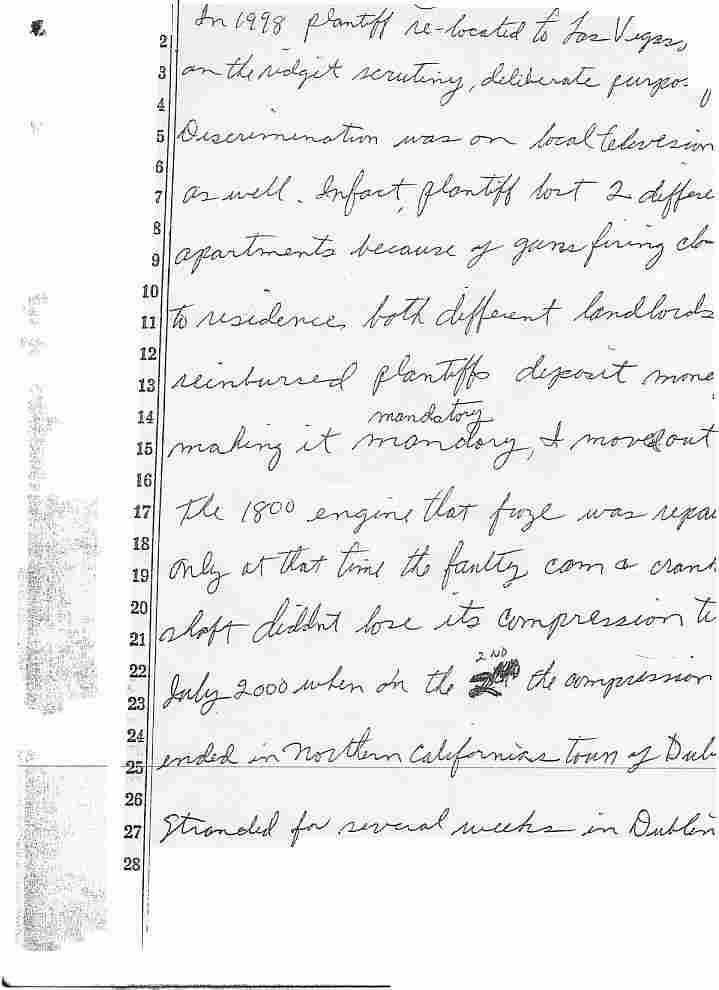 In 1998 plantiff re-located to Las Vegas,
2
3 on the ridgit scrutiny, deliberate purpos
4
5 Discrimination was on local televesion
6
7 as well. Infact, plantiff lost 2 differe
8
9 apartments because of guns firing clo
10
11 to residence, both different landlords
12
13 reinbursed plantiffs deposit mone
14 mandatory
15 making it mandory, I moved out
16
17 The 1800 engine that froze was repai
18
19 only at that time the faulty cam & crank
20
21 shaft diddnt lose its compression ti
22 2ND
23 July 2000 when on the the compression
24
25 ended in Northern Californias town of Dub
26
27 Stranded for several weeks in Dublin
28